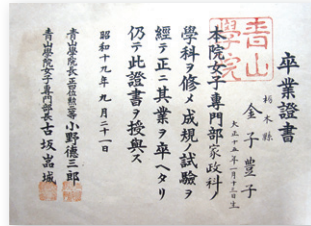 卒業證書
栃木縣
金子豊子
大正十五年一月十三日生
本院女子專門部家政科ノ
學科ヲ修メ成規ノ試驗ヲ
經テ正ニ其業ヲ卒ヘタリ
仍テ此證書ヲ授與ス
昭和十九年九月二十一日
青山學院長正四位勲三等小野德三郎
青山學院女子專門部長古坂嵓城
青山
學院